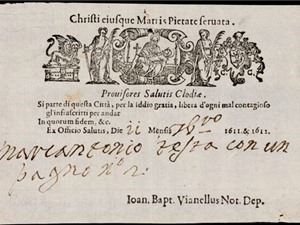 Christi eiusque Matris Pietate seruata.
Prouisores Salutis Clodiæ.
Si parte di questa Città, per la iddio gratia, libera d'ogni mal contagioso
gl'infrascritti per andar
In quorum fidem, &c.
Ex Officio Salutis, Die ii Mensis 1611. & 1612.
Marcantonio Testa con un
pagno nº 2.
Ioan. Bapt. Vianellus Not. Dep.